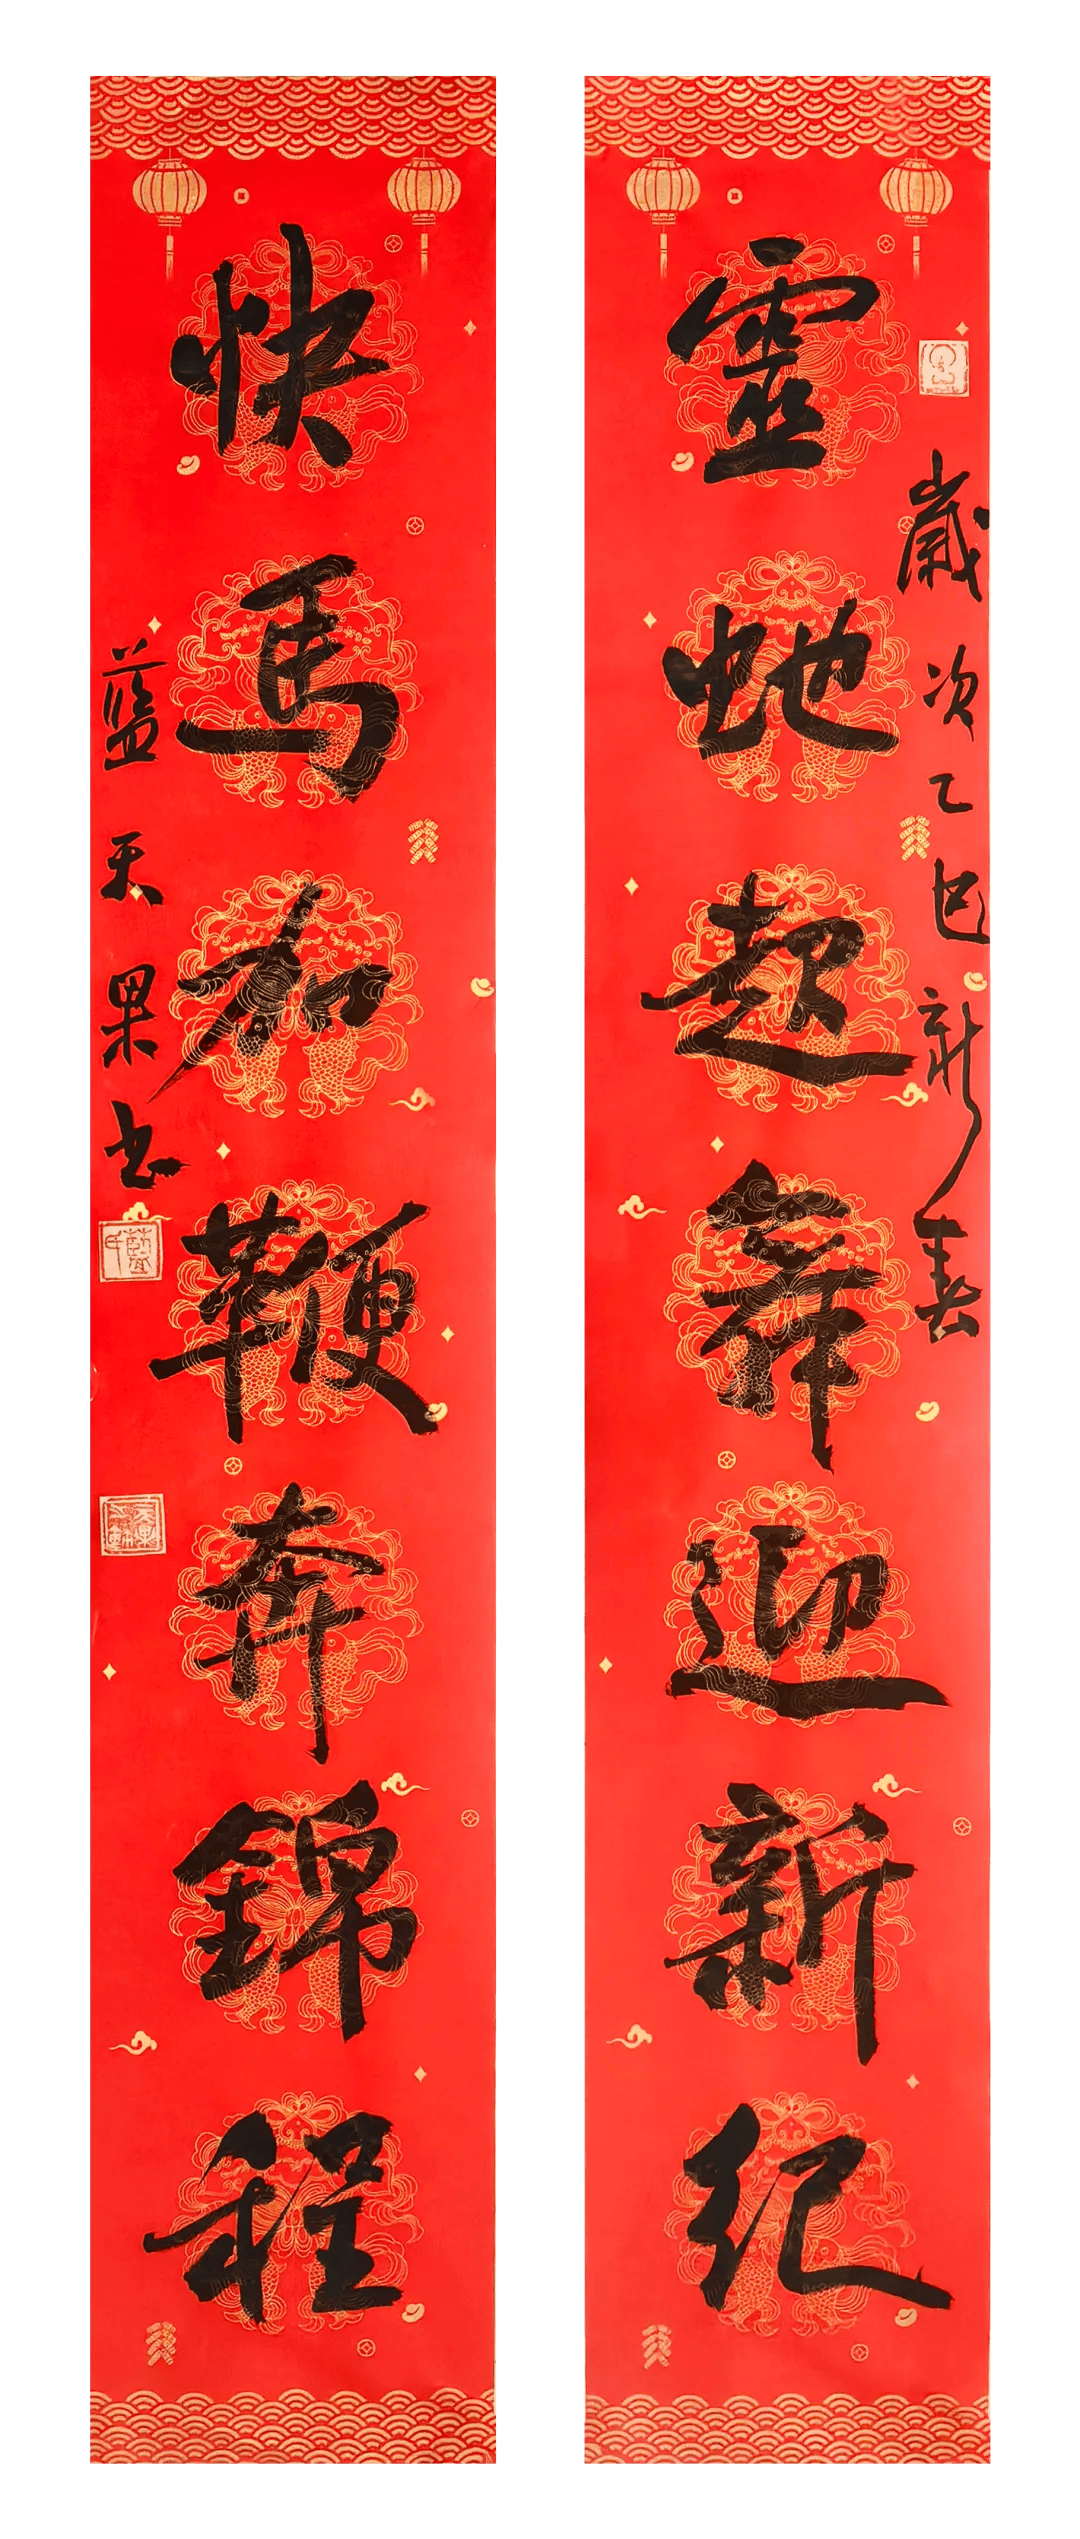 歲次乙巳新春
靈虵起舞迎新紀
快馬加鞭奔錦程
藍天果书
藍氏